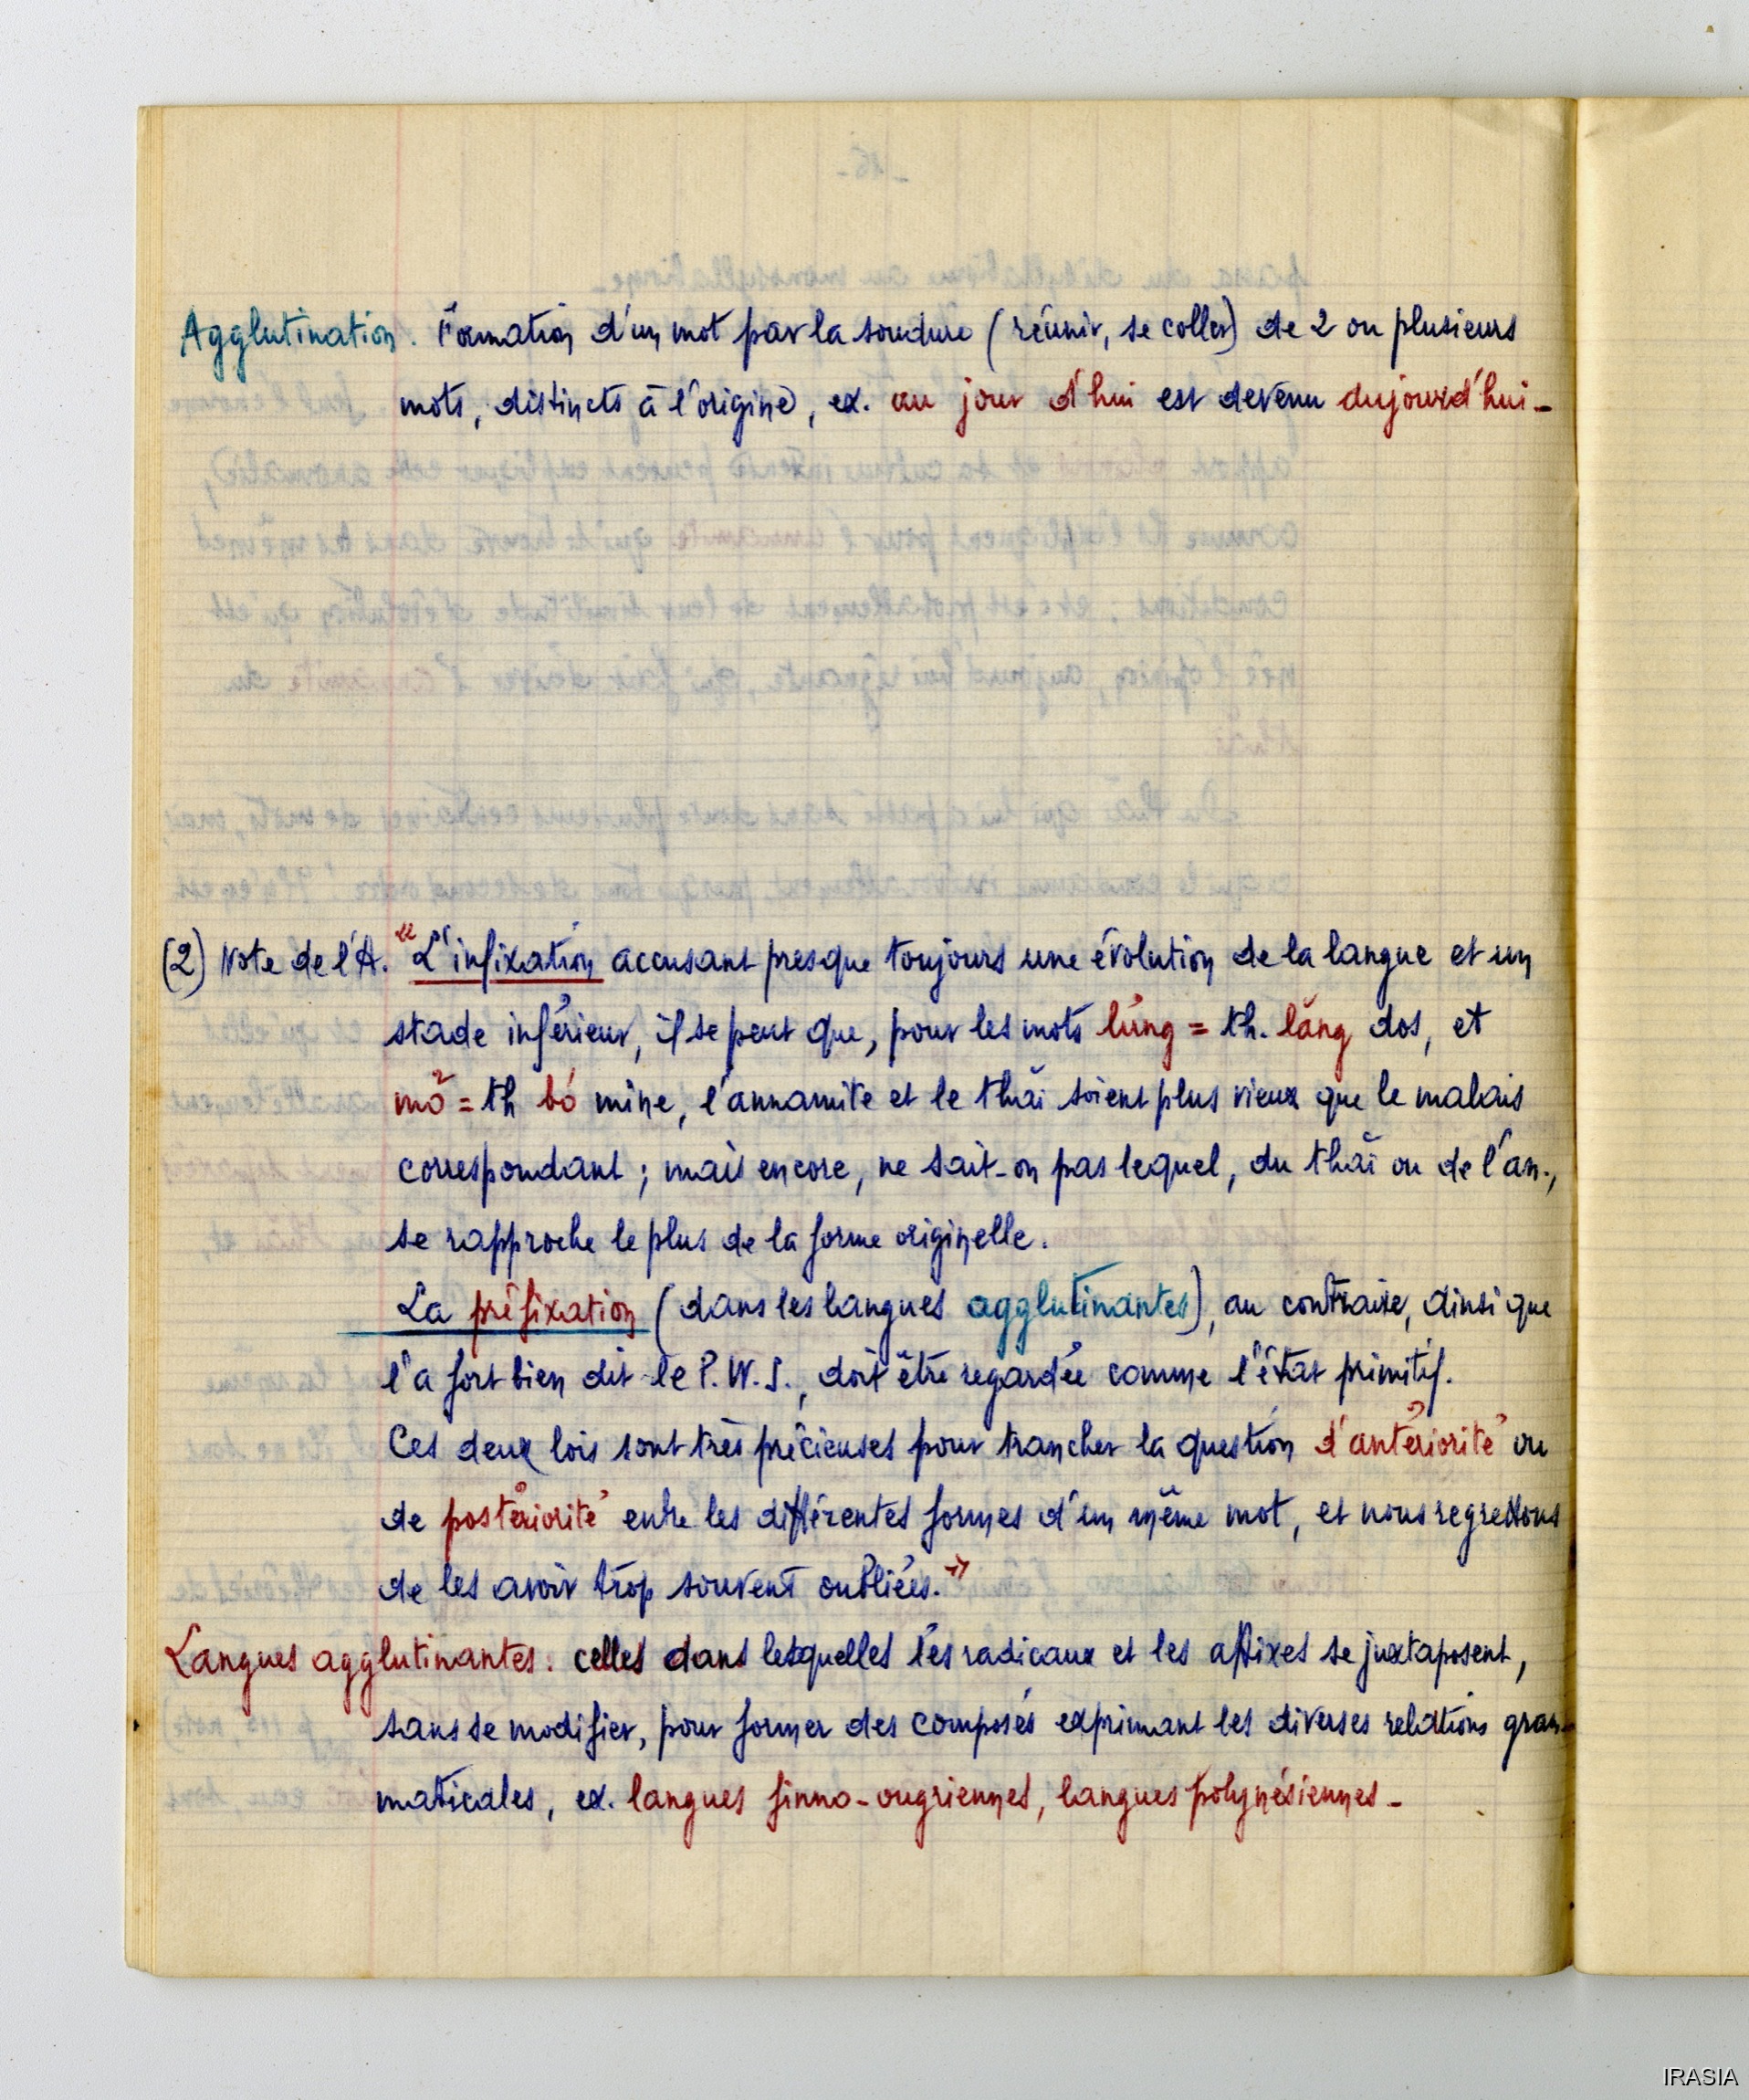 Agglutination. Formation d'un mot par la soudure (réunir, se coller) de 2 ou plusieurs
mots, distincts à l'origine, ex. au jour d'hui est devenu aujourd'hui -
(2) Note de l'A. "L'infixation accusant presque toujours une évolution de la langue et un
stade inférieur, il se peut que, pour les mots lưng = th. lăng dos, et
mỏ = th bó mine, l'annamite et le thăi soient plus vieux que le malais
correspondant ; mais encore, ne sait-on pas lequel, du thăi ou de l'an.,
se rapproche le plus de la forme originelle.
La préfixation (dans les langues agglutinantes), au contraire, ainsi que
l'a fort bien dit le P.W.S., doit être regardée comme l'état primitif.
Ces deux lois sont très précieuses pour trancher la question d'antériorité ou
de postériorité entre les différentes formes d'un même mot, et nous regrettons
de les avoir trop souvent oubliées."
Langues agglutinantes : celles dans lesquelles les radicaux et les affixes se juxtaposent,
sans se modifier, pour former des composés exprimant les diverses relations gram-
maticales, ex. langues finno-ougriennes, langues polynésiennes -
IRASIA